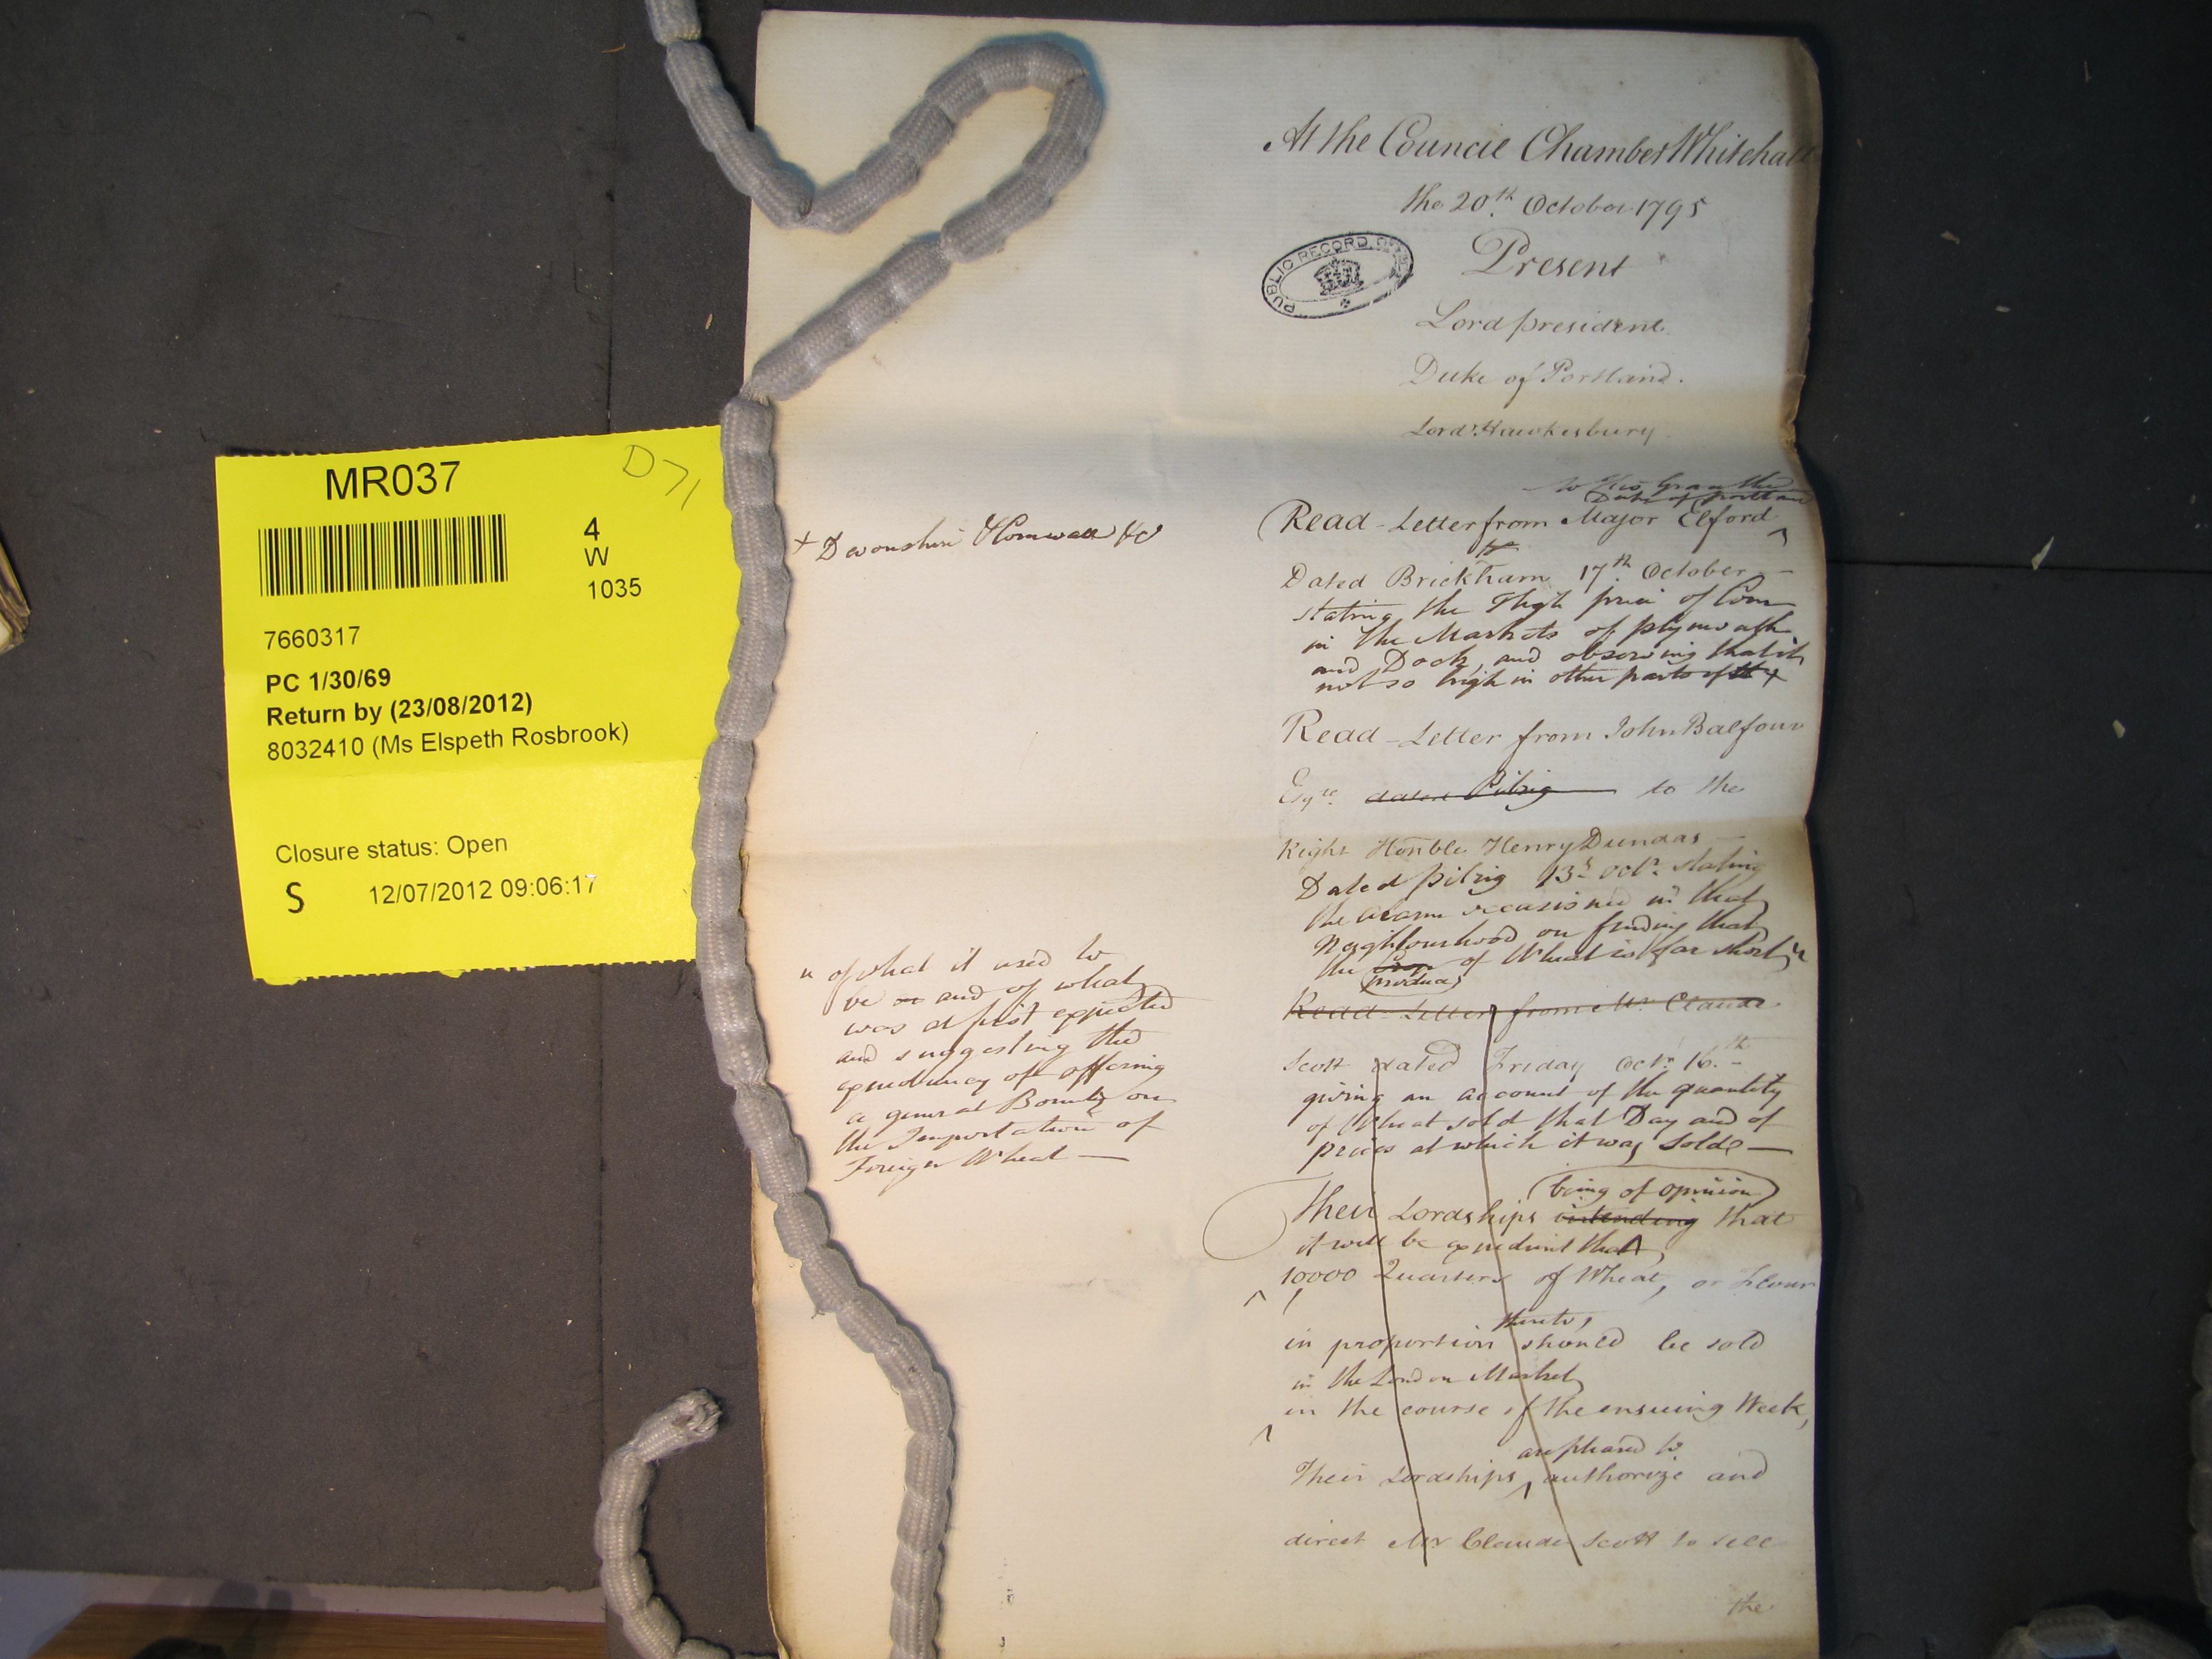 MR037
D71
4
W
1035
7660317
PC 1/30/69
Return by (23/08/2012)
8032410 (Ms Elspeth Rosbrook)
Closure status: Open
S 12/07/2012 09:06:17
At the Council Chamber Whitehall
the 20th October 1795
PUBLIC RECORD OFFICE
Present
Lord president
Duke of Portland.
Lord Hawkesbury
to his Grace the
Duke of Portland
Read - Letter from Major Elford
Dated Brickham 17th October
stating the High price of Corn
in the Markets of plymouth
and Dock, and observing that it
not so high in other parts of +
+ Devonshire & Cornwall &c
Read - Letter from John Balfour
Esqre. dated Pilrig to the
Right Honble Henry Dundas
Dated pilrig 13th Octr. stating
the alarm occasioned in that
Neighbourhood on finding that
the crop of Wheat is far short "
produce
" of what it used to
be or and of what
was at first expected
and suggesting the
expediency of offering
a general Bounty on
the Importation of
Foreign Wheat —
Read - Letter from Mr. Claude
Scott dated Friday Octr. 16th
giving an account of the quantity
of Wheat sold that Day and of
prices at which it was sold —
being of opinion
Their Lordships intending that
it will be expedient that
10000 Quarters of Wheat, or Flour
thereto,
in proportion should be sold
in the London Market
in the course of the ensuing Week,
are pleased to
Their Lordships authorize and
direct Mr Claude Scott to sell
the